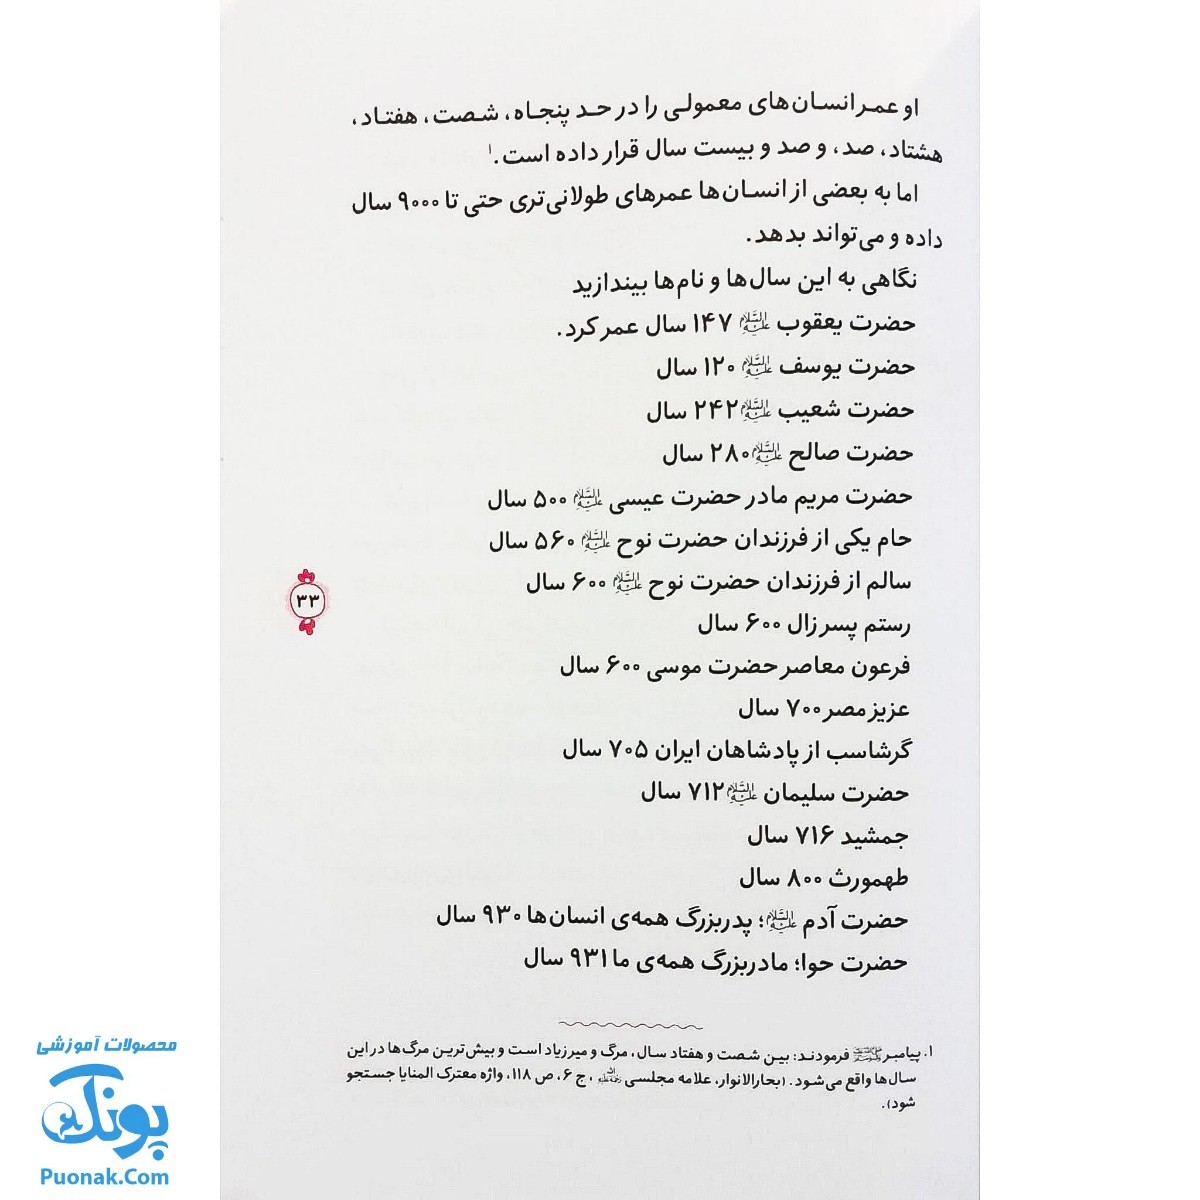 او عمر انسان‌های معمولی را در حد پنجاه، شصت، هفتاد،
هشتاد، صد، و صد و بیست سال قرار داده است.۱
اما به بعضی از انسان‌ها عمرهای طولانی‌تری حتی تا ۹۰۰۰ سال
داده و می‌تواند بدهد.
نگاهی به این سال‌ها و نام‌ها بیندازید
حضرت یعقوب علیه السلام ۱۴۷ سال عمر کرد.
حضرت یوسف علیه السلام ۱۲۰ سال
حضرت شعیب علیه السلام ۲۴۲ سال
حضرت صالح علیه السلام ۲۸۰ سال
حضرت مریم مادر حضرت عیسی علیه السلام ۵۰۰ سال
حام یکی از فرزندان حضرت نوح علیه السلام ۵۶۰ سال
سالم از فرزندان حضرت نوح علیه السلام ۶۰۰ سال
۳۳
رستم پسر زال ۶۰۰ سال
فرعون معاصر حضرت موسی ۶۰۰ سال
عزیز مصر ۷۰۰ سال
گرشاسب از پادشاهان ایران ۷۰۵ سال
حضرت سلیمان علیه السلام ۷۱۲ سال
جمشید ۷۱۶ سال
طهمورث ۸۰۰ سال
حضرت آدم علیه السلام؛ پدربزرگ همه‌ی انسان‌ها ۹۳۰ سال
حضرت حوا؛ مادربزرگ همه‌ی ما ۹۳۱ سال
۱. پیامبر ﷺ فرمودند: بین شصت و هفتاد سال، مرگ و میر زیاد است و بیش‌ترین مرگ‌ها در این
سال‌ها واقع می‌شود. (بحارالانوار، علامه مجلسی رحمة الله علیه، ج ۶، ص ۱۱۸، واژه معترک المنایا جستجو
شود).
محصولات آموزشی
پونک
Puonak.Com